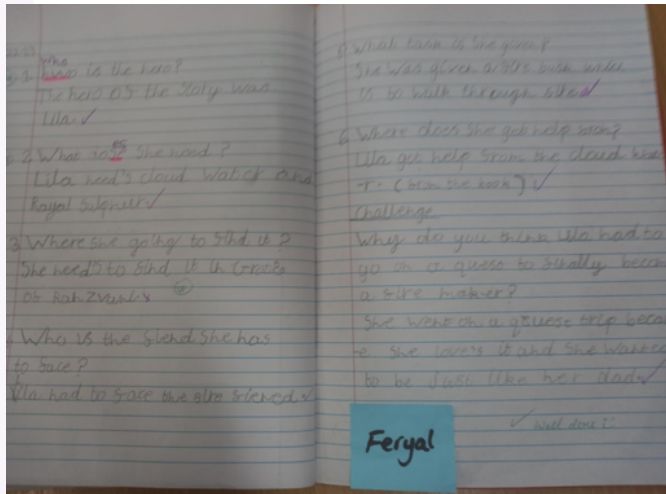 who
is the hero?
The hero of the story was
Lila.
2. What does she need?
Lila need's cloud water and
Royal sulpher
3. Where she going to find it?
She need's to find it in Grotto
of
Who is the fiend she has
to face?
Lila had to face the fire fiened
5. What task is she given?
She was given a fire task
is to walk through fire
6. Where does she get help from?
Lila got help from the cloud
(from the book)
Challenge
Why do you think Lila had to
go on a quest to finally becom
a fire maker?
She went on a qguest trip beca
-e she love's it and she wanted
to be Just like her dad.
Well done
Feryal